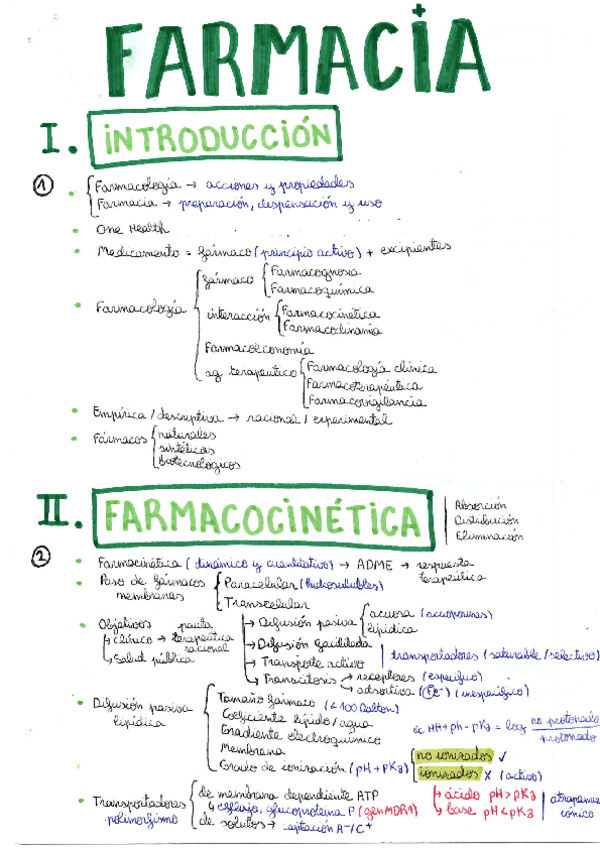 FARMACIA
I. INTRODUCCIÓN
① • Farmacología → acciones y propiedades
Farmacia → preparación, dispensación y uso
• One Health
• Medicamento = fármaco (principio activo) + excipientes
• Farmacología
fármaco
Farmacognosia
Farmacoquímica
interacción
Farmacocinética
Farmacodinamia
Farmacoeconomía
ag. terapéutico
Farmacología clínica
Farmacoterapéutica
Farmacovigilancia
• Empírica / descriptiva → racional / experimental
• Fármacos
naturales
sintéticos
biotecnológicos
II. FARMACOCINÉTICA
Absorción
Distribución
Eliminación
② • Farmacinética (dinámico y cuantitativo) → ADME → respuesta terapéutica
• Paso de fármacos membranas
Paracelular (hidrosolubles)
Transcelular
→ Difusión pasiva
acuosa (acuoporinas)
lipídica
→ Difusión facilitada
→ Transporte activo
transportadores (saturable / selectivo)
→ Transcitosis → receptores (específico)
→ adsortiva (inespecífico)
• Objetivos
→ clínico → pauta terapéutica racional
→ Salud pública
• Difusión pasiva lipídica
Tamaño fármaco (< 100 Dalton)
Coeficiente lípido / agua
Gradiente electroquímico
Membrana
Grado de ionización (pH + pKa)
no ionizados ✓
ionizados X (activo)
ec HH → ph - pKa = log no protonado / protonado
→ ácido pH > pKa
→ base pH < pKa
atrapamie
iónico
• Transportadores polimorfismo
de membrana dependiente ATP
↳ eflujo, glucoproteína P (gen MDR1)
de solutos → captación A⁻/C⁺